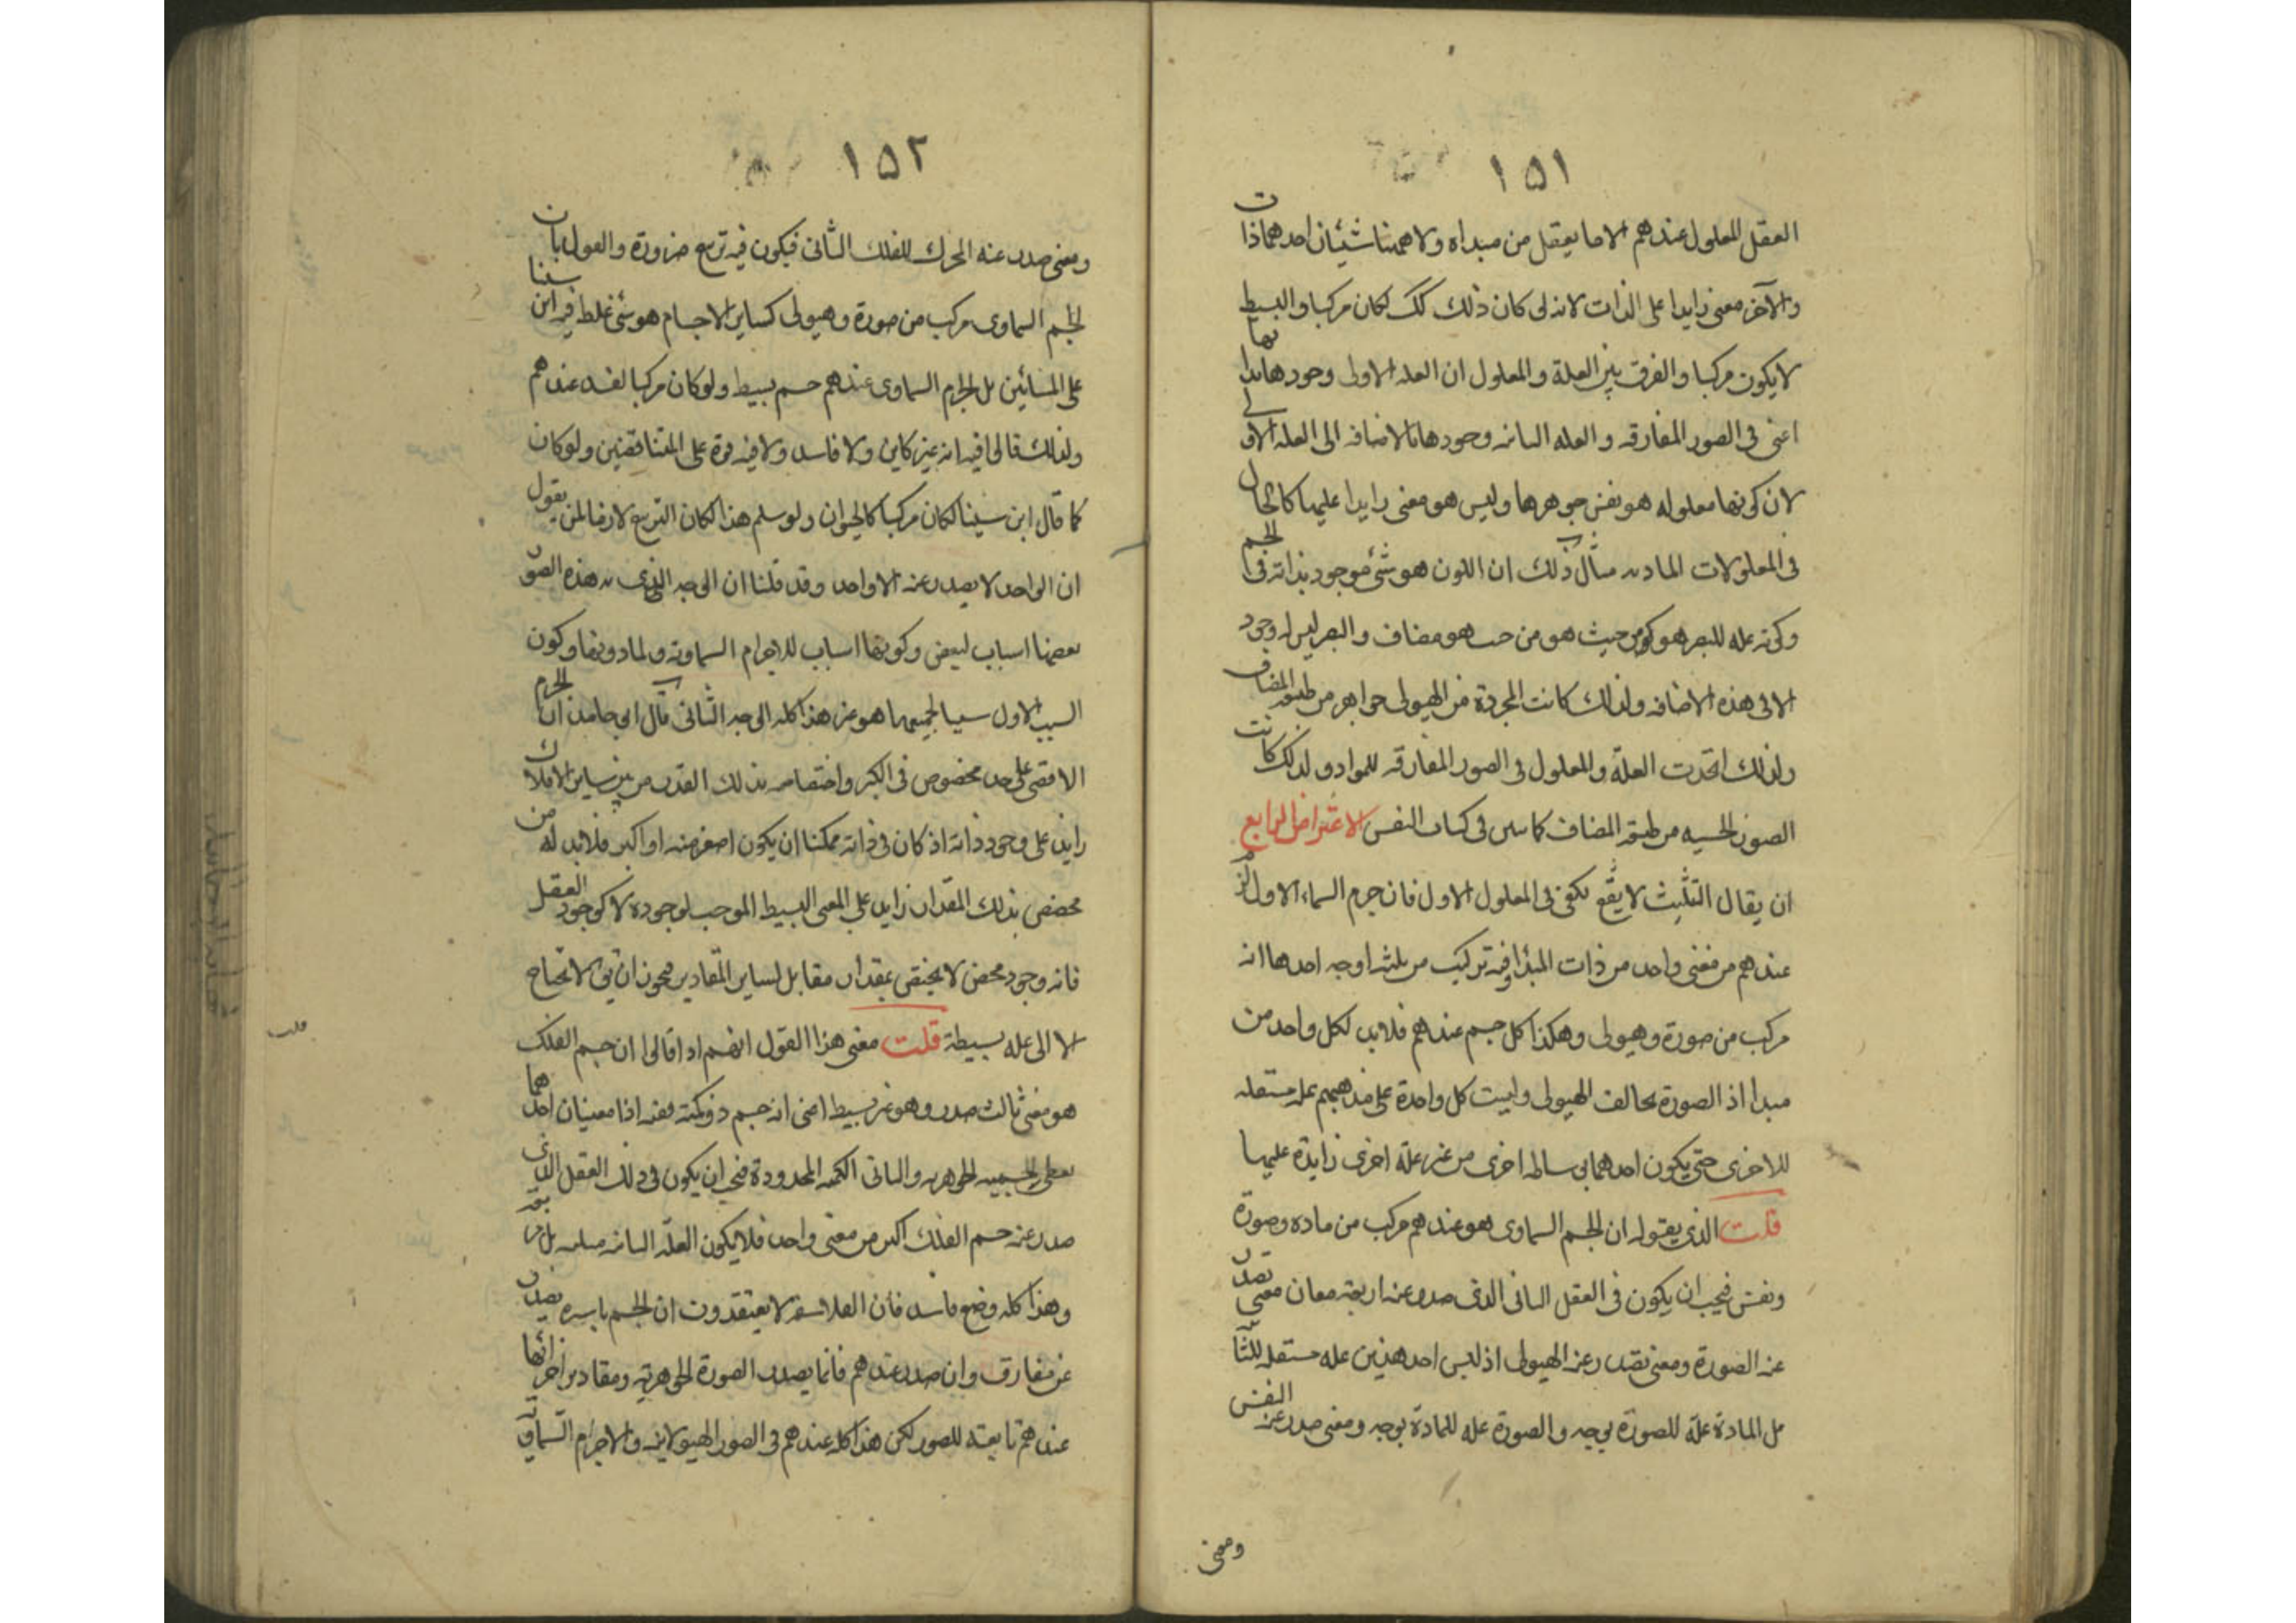 ١٥١
العقل المعلول عندهم الا ما يعقل من مبداه ولا ههنا شيئان احدهما ذات
والآخر معنى زايدا على الذات لانه لو كان ذلك كك لكان مركبا والبسيط
لا يكون مركبا والفرق بين العلة والمعلول ان العله الاولى وجودها بذاتها
اعنى فى الصور المفارقه والعله الثانيه وجودها بالاضافه الى العله الاولى
لان كونها معلوله هو نفس جوهرها وليس هو معنى زايدا عليها كالحال
فى المعلولات الماديه مثال ذلك ان اللون هو شئ موجود بذاته فى الجسم
وكونه عله للبصر هو من حيث هو مضاف والبصر ليس له وجود
الا فى هذه الاضافه ولذلك كانت المجردة من الهيولى جواهر من طبيعه المضاف
ولذلك اتحدت العلة والمعلول فى الصور المفارقه للمواد ولذلك كانت
الصور الحسيه من طبيعه المضاف كما تبين فى كتاب النفس الاعتراض الرابع
ان يقال التثليث لا يكفى فى المعلول الاول فان جرم السماء الاول لزم
عندهم من معنى واحد من ذات المبدأ وفيه تركيب من ثلثه اوجه احدها انه
مركب من صورة وهيولى وهكذا كل جسم عندهم فلا بد لكل واحد من
مبدا اذ الصورة تخالف الهيولى وليست كل واحدة على مذهبهم علة مستقله
للاخرى حتى يكون احدهما بوساطه اخرى من غير علة اخرى زايدة عليها
قلت الذى يقوله ان الجسم السماوى هو عندهم مركب من ماده وصورة
ونفس فيجب ان يكون فى العقل الثانى الذى صدر عنه اربعة معان معنى تصدر
عنه الصورة ومعنى تصدر عنه الهيولى اذ ليس احد هذين عله مستقله للثانى
بل المادة علة للصورة بوجه والصورة عله للمادة بوجه ومعنى صدر عنه النفس
ومعنى
١٥٢
ومعنى صدر عنه المحرك للفلك الثانى فيكون فيه تربيع ضرورة والقول بان
الجسم السماوى مركب من صورة وهيولى كساير الاجسام هو شئ غلط فيه ابن سينا
على المشائين بل الجرم السماوى عندهم جسم بسيط ولو كان مركبا لفسد عندهم
ولذلك قالوا فيه انه غير كاين ولا فاسد ولا فيه قوة على المتناقضين ولو كان
كما قال ابن سينا لكان مركبا كالحيوان ولو سلم هذا لكان التربيع لازما لمن يقول
ان الواحد لا يصدر عنه الا واحد وقد قلنا ان الوجه الذى به هذه الصور
بعضها اسباب لبعض وكونها اسباب للاجرام السماويه ولما دونها وكون
السبب الاول سببا لجميعها هو غير هذا كله الوجه الثانى قال ابو حامد ان الجرم
الاقصى على حد مخصوص فى الكبر واختصاصه بذلك القدر من بين ساير الافلاك
زايد على وجود ذاته اذ كان فى ذاته ممكنا ان يكون اصغر منه او اكبر فلا بد له من
مخصص بذلك المقدار زايد على المعنى البسيط الموجب لوجوده لا كوجود العقل
فانه وجود محض لا يختص بمقدار مقابل لساير المقادير فيجوز ان يق لا تحتاج
الا الى عله بسيطة قلت معنى هذا القول انهم اذا قالوا ان جسم الفلك
هو معنى ثالث صدر وهو غير بسيط اعنى انه جسم ذو كمية ففيه اذا معنيان احدهما
يعطى الجسميه الجوهريه والثانى الكميه المحدودة فيجب ان يكون فى ذلك العقل الذى
صدر عنه جسم الفلك اكثر من معنى واحد فلا يكون العلة الثانيه مثلثه بل مربعة
وهذا كله وضع فاسد فان الفلاسفه لا يعتقدون ان الجسم باسره يصدر
عن مفارق وان صدر عندهم فانما يصدر الصورة الجوهرية ومقادير اجزائها
عندهم تابعة للصور لكن هذا كله عندهم فى الصور الهيولانيه والاجرام السماوية
قلت